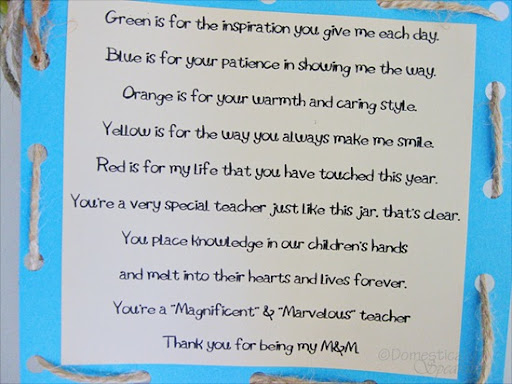 Green is for the inspiration you give me each day.
Blue is for your patience in showing me the way.
Orange is for your warmth and caring style.
Yellow is for the way you always make me smile.
Red is for my life that you have touched this year.
You're a very special teacher just like this jar, that's clear.
You place knowledge in our children's hands
and melt into their hearts and lives forever.
You're a "Magnificent" & "Marvelous" teacher
Thank you for being my M&M
©Domestically
Speaking